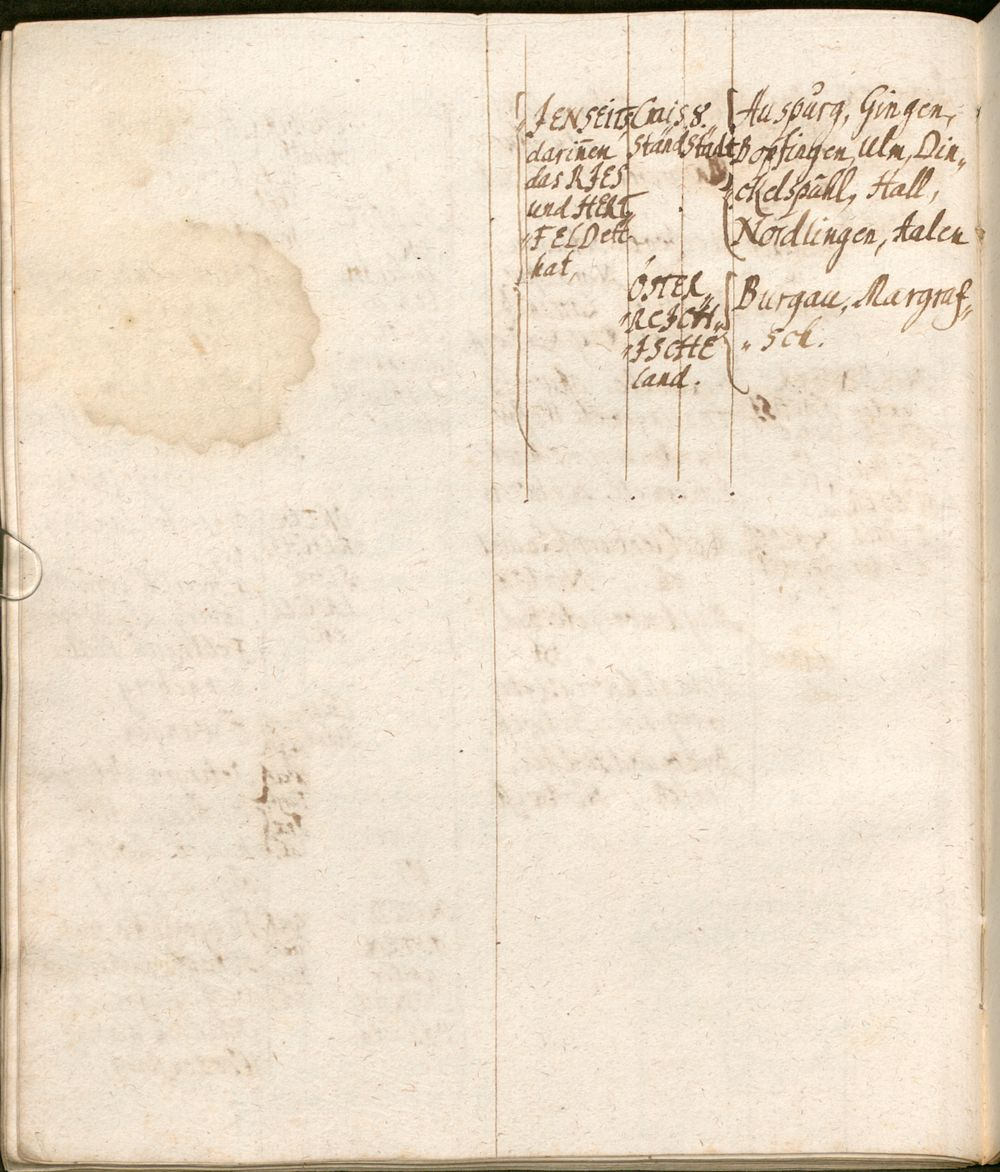 JENSEITS
darin̄en
das RIES
und HERT„
FELD etc
hat,
Crais
Ständ
8.
Städt
Auspurg, Gingen,
Bopfingen, Ulm, Din„
ckelspühl, Hall,
Nördlingen, Aalen
ÖSTER„
„REICH„
„ISCHE
Land.
Burgau, Margraf„
„Sch.